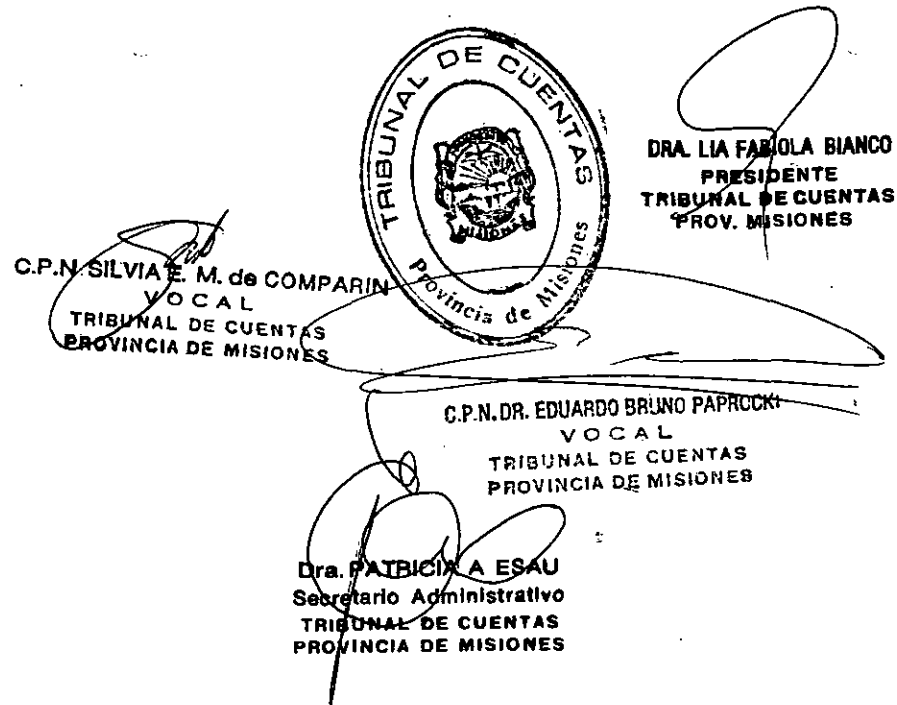 TRIBUNAL DE CUENTAS
Provincia de Misiones
MISIONES
DRA. LIA FABIOLA BIANCO
PRESIDENTE
TRIBUNAL DE CUENTAS
PROV. MISIONES
C.P.N. SILVIA E. M. de COMPARIN
VOCAL
TRIBUNAL DE CUENTAS
PROVINCIA DE MISIONES
C.P.N. DR. EDUARDO BRUNO PAPROCKI
VOCAL
TRIBUNAL DE CUENTAS
PROVINCIA DE MISIONES
Dra. PATRICIA A ESAU
Secretario Administrativo
TRIBUNAL DE CUENTAS
PROVINCIA DE MISIONES